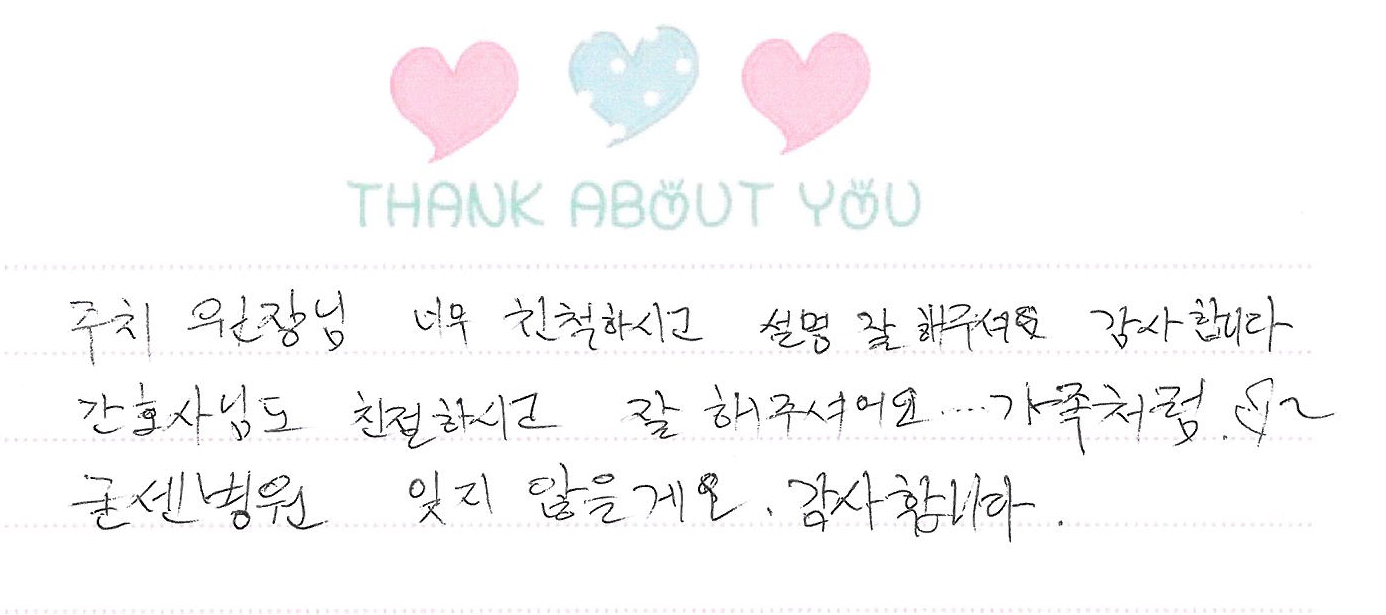 THANK ABOUT YOU
주치 원장님 너무 친척하시고 설명 잘 해주셔요 감사합니다
간호사님도 친절하시고 잘 해주셔어요.... 가족처럼.♡~
굳센병원 잊지 않을게요. 감사합니다.